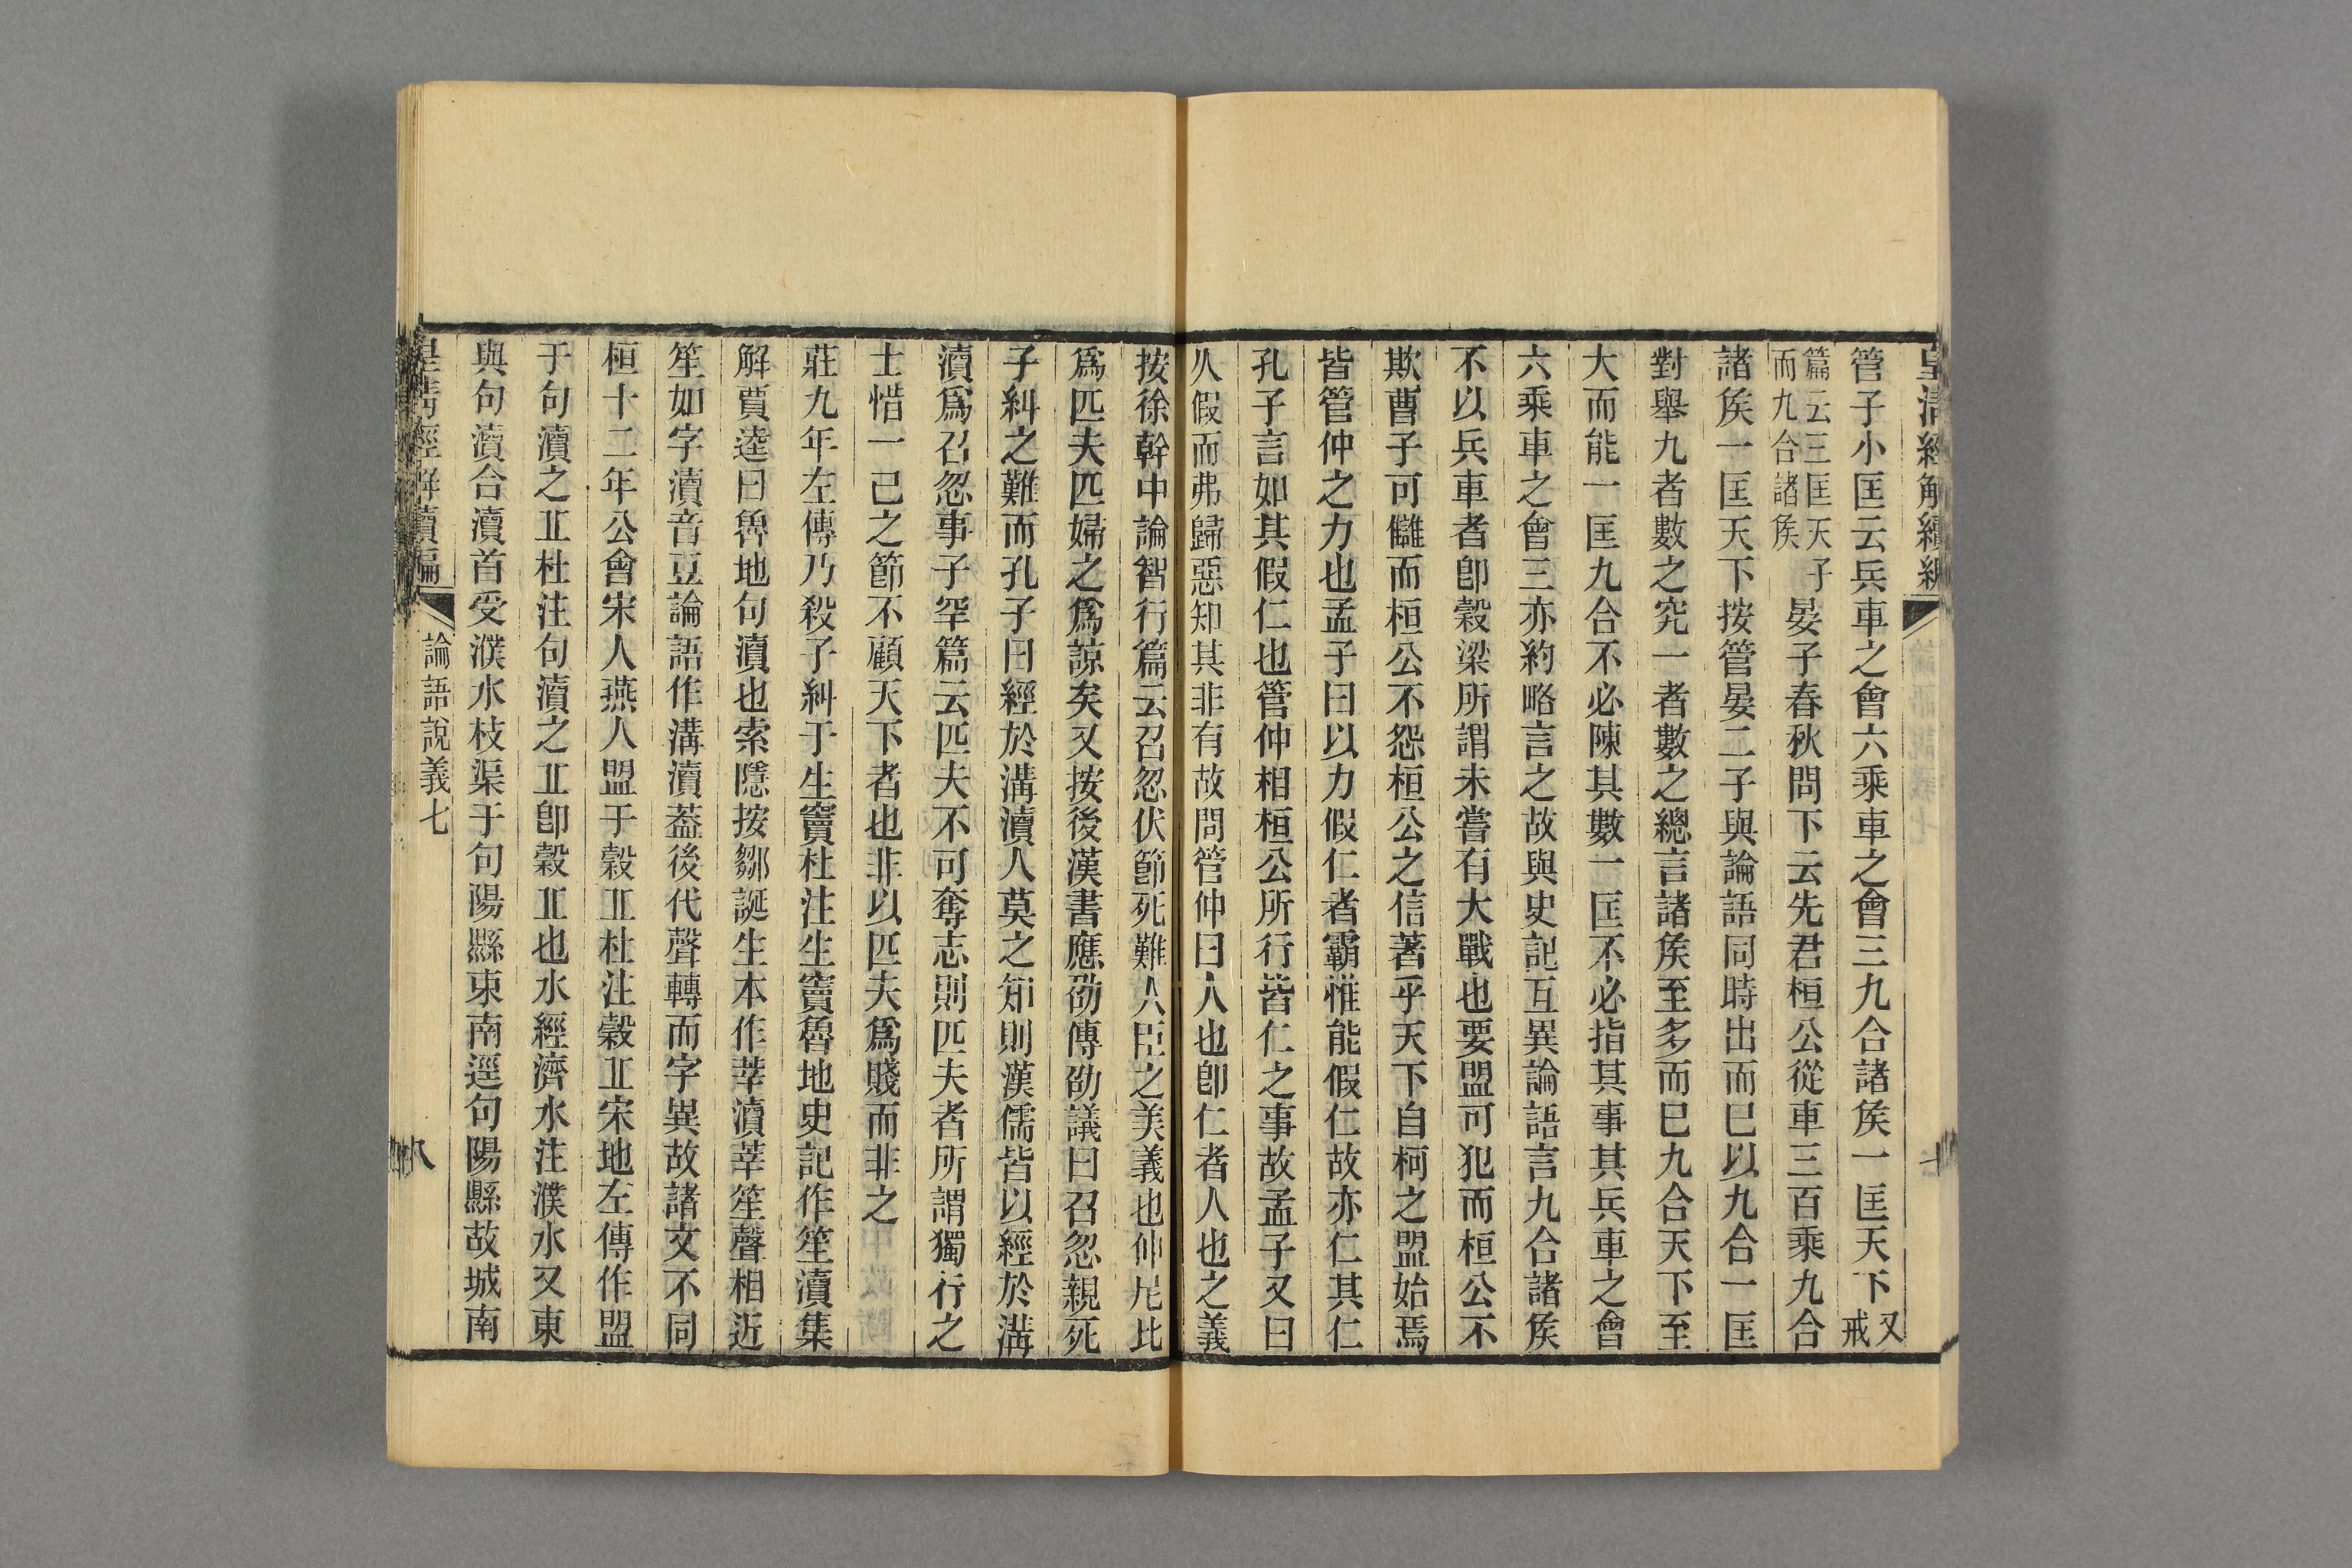 皇清經解續編
七
管子小匡云兵車之會六乘車之會三九合諸矦一匡天下又戒
篇云三匡天子而九合諸矦晏子春秋問下云先君桓公從車三百乘九合
諸矦一匡天下按管晏二子與論語同時出而巳以九合一匡
對舉九者數之究一者數之總言諸矦至多而巳九合天下至
大而能一匡九合不必陳其數一匡不必指其事其兵車之會
六乘車之會三亦約略言之故與史記互異論語言九合諸矦
不以兵車者卽穀梁所謂未嘗有大戰也要盟可犯而桓公不
欺曹子可讎而桓公不怨桓公之信著乎天下自柯之盟始焉
皆管仲之力也孟子曰以力假仁者霸惟能假仁故亦仁其仁
孔子言如其假仁也管仲相桓公所行皆仁之事故孟子又曰
久假而弗歸惡知其非有故問管仲曰人也卽仁者人也之義
按徐幹中論智行篇云召忽伏節死難人臣之美義也仲尼比
爲匹夫匹婦之爲諒矣又按後漢書應劭傳劭議曰召忽親死
子糾之難而孔子曰經於溝瀆人莫之知則漢儒皆以經於溝
瀆爲召忽事子罕篇云匹夫不可奪志則匹夫者所謂獨行之
士惜一己之節不顧天下者也非以匹夫爲賤而非之
莊九年左傳乃殺子糾于生竇杜注生竇魯地史記作笙瀆集
解賈逵曰魯地句瀆也索隱按鄒誕生本作莘瀆莘笙聲相近
笙如字瀆音豆論語作溝瀆葢後代聲轉而字異故諸文不同
桓十二年公會宋人燕人盟于穀丠杜注穀丠宋地左傳作盟
于句瀆之丠杜注句瀆之丠卽穀丠也水經濟水注濮水又東
與句瀆合瀆首受濮水枝渠于句陽縣東南逕句陽縣故城南
皇清經解續編
論語說義七
八